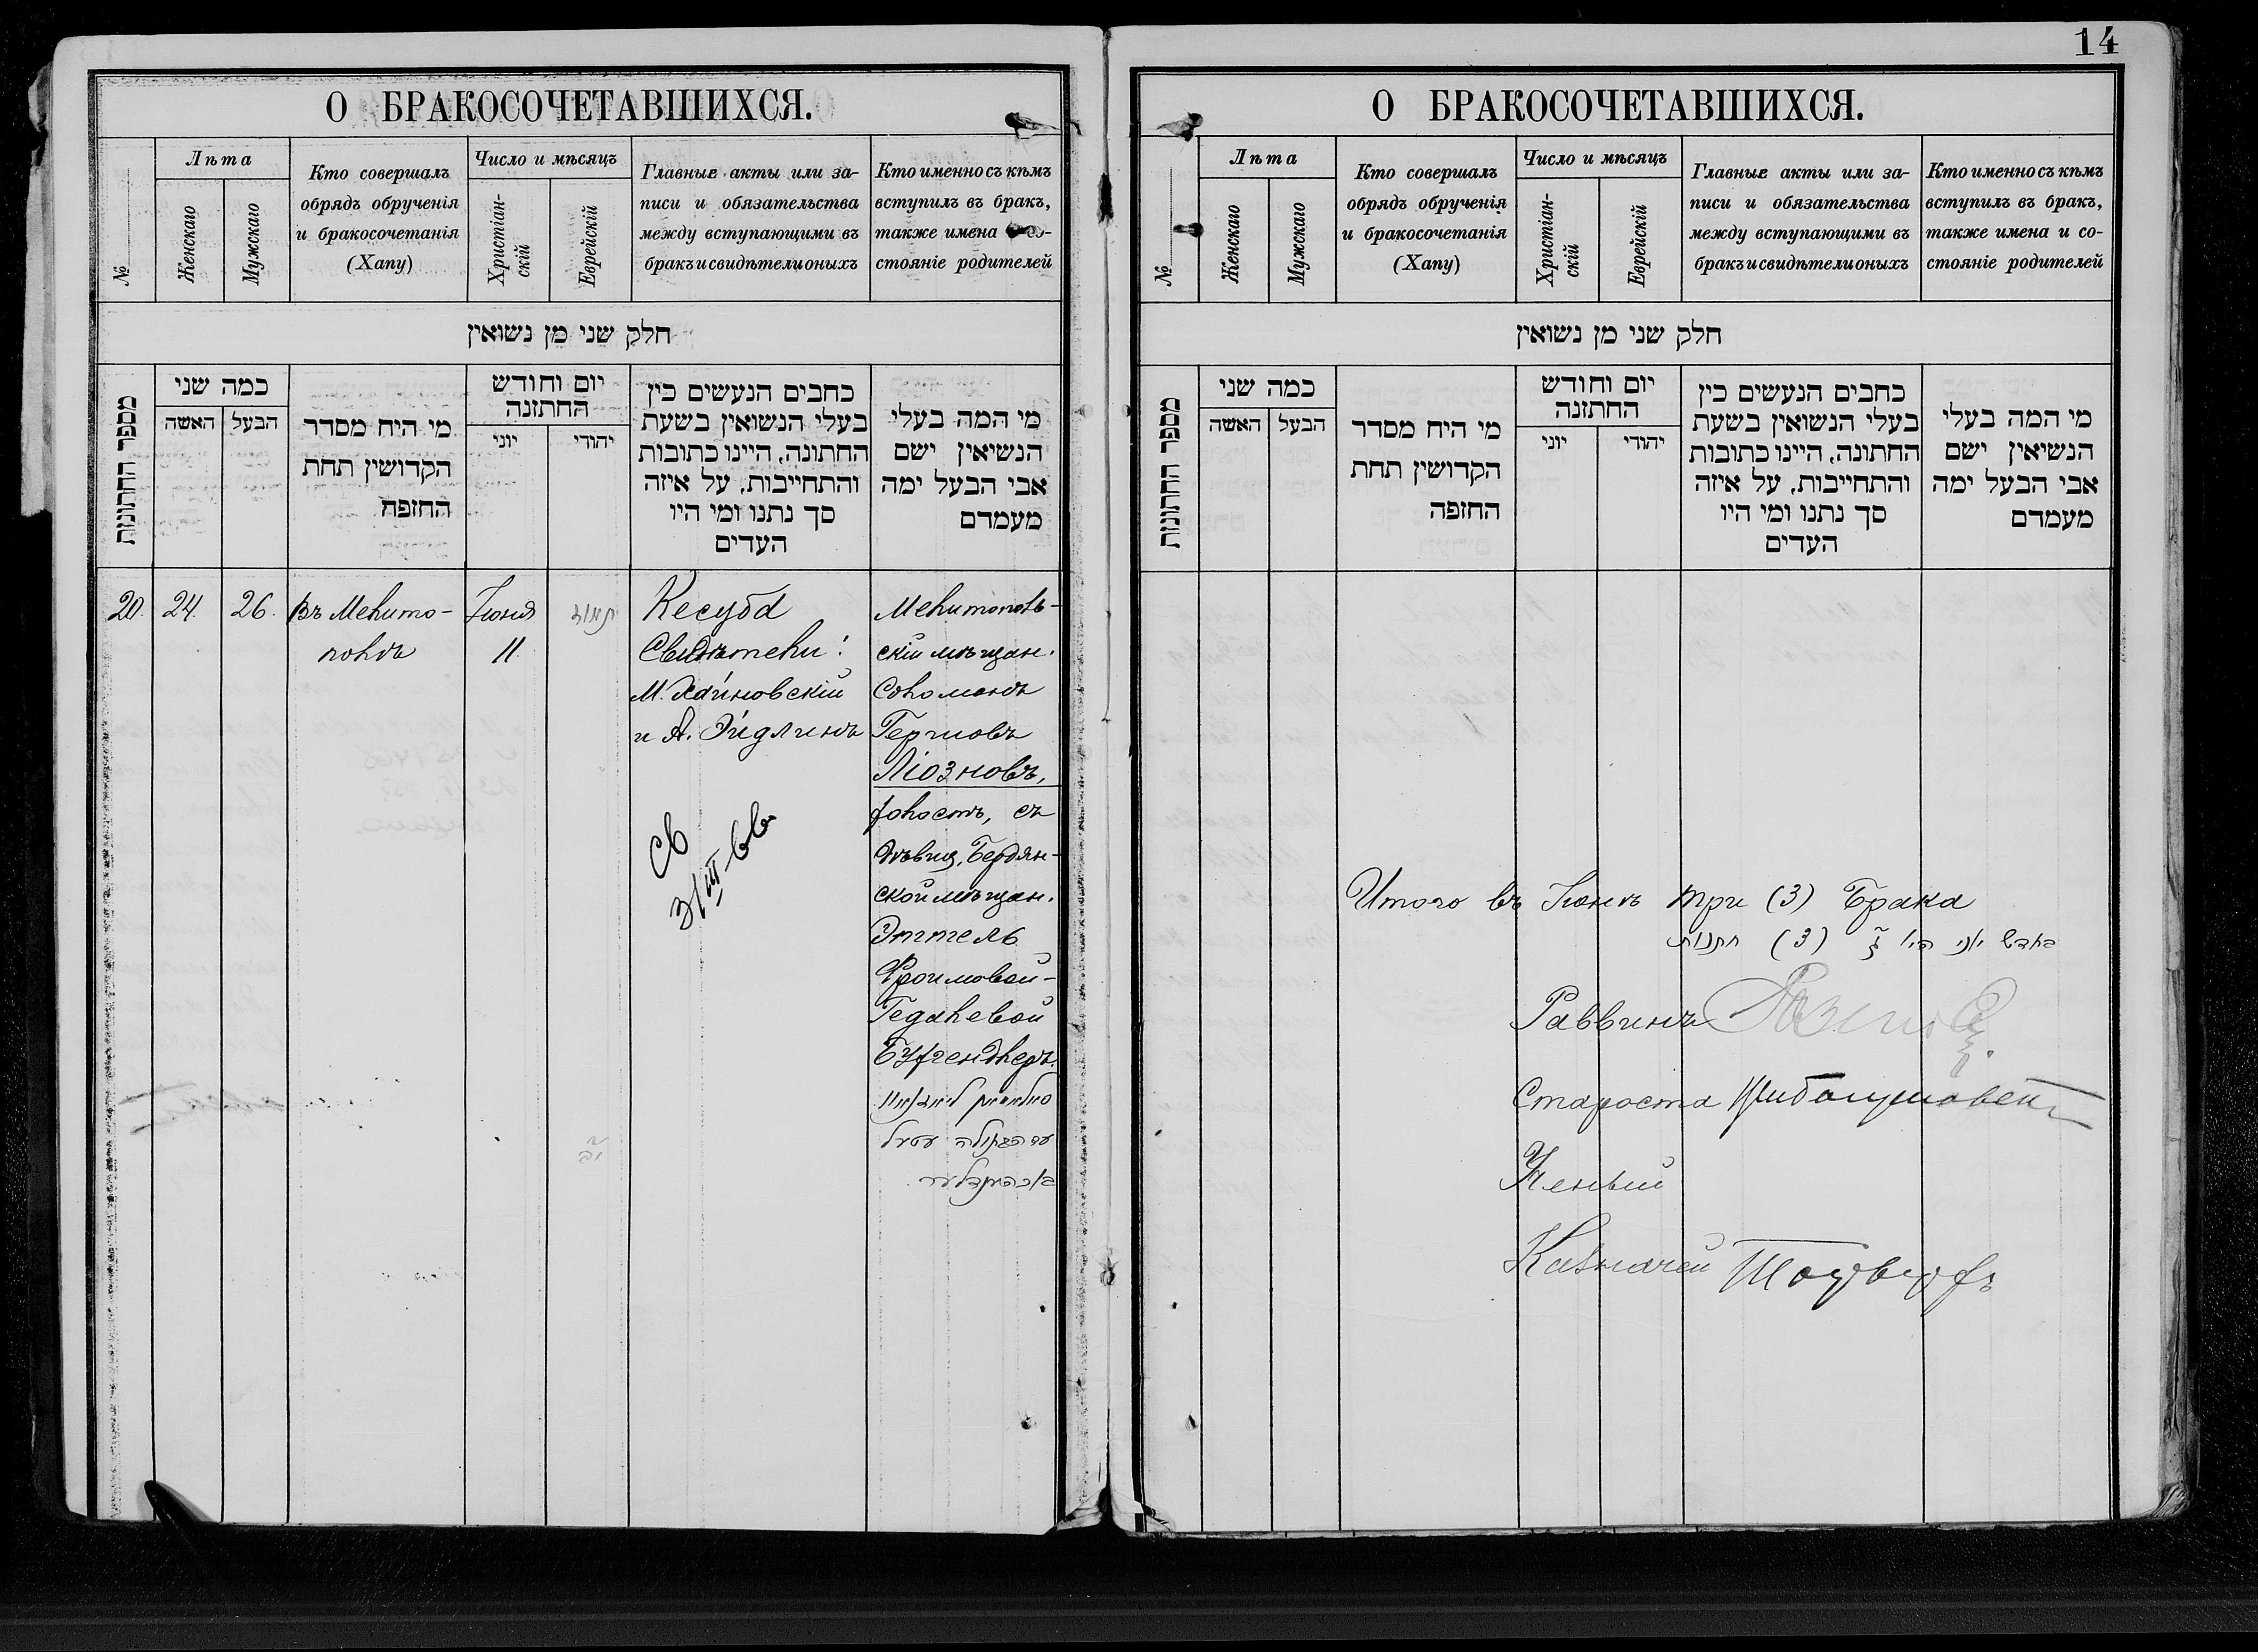 14
О БРАКОСОЧЕТАВШИХСЯ.
№
Лѣта
Женскаго
Мужскаго
Кто совершалъ
обрядъ обрученія
и бракосочетанія
(Хапу)
Число и мѣсяцъ
Христіан-
скій
Еврейскій
Главные акты или за-
писи и обязательства
между вступающими въ
бракъ и свидѣтели оныхъ
Кто именно съ кѣмъ
вступилъ въ бракъ,
также имена
стояніе родителей
חלק שני מן נשואין
מספר החתונות
כמה שני
האשה
הבעל
מי היח מסדר
הקדושין תחת
החופה
יום וחודש
החתונה
יוני
יהודי
כחבים הנעשים כין
בעלי הנשואין בשעת
החתונה, היינו כתובות
והתחייבות, על איזה
סך נתנו ומי היו
העדים
מי המה בעלי
הנשיאין ישם
אבי הבעל ימה
מעמדם
20.
24.
26.
Въ Мелито-
полѣ
Іюня
11
יב
Кесуба
Свидѣтели:
М. Хайновскій
и А. Эйдлинъ
Св
3/III-66
Мелитополь-
скій мѣщан.
Соломонъ
Гершовъ
Ліозновъ,
холостъ, съ
дѣвиц. Бердян-
ской мѣщан.
Эттель
Фроимовой-
Гедалевой
Бухгендлеръ.
О БРАКОСОЧЕТАВШИХСЯ.
№
Лѣта
Женскаго
Мужскаго
Кто совершалъ
обрядъ обрученія
и бракосочетанія
(Хапу)
Число и мѣсяцъ
Христіан-
скій
Еврейскій
Главные акты или за-
писи и обязательства
между вступающими въ
бракъ и свидѣтели оныхъ
Кто именно съ кѣмъ
вступилъ въ бракъ,
также имена и со-
стояніе родителей
חלק שני מן נשואין
מספר החתונות
כמה שני
האשה
הבעל
מי היח מסדר
הקדושין תחת
החופה
יום וחודש
החתונה
יוני
יהודי
כחבים הנעשים כין
בעלי הנשואין בשעת
החתונה, היינו כתובות
והתחייבות, על איזה
סך נתנו ומי היו
העדים
מי המה בעלי
הנשיאין ישם
אבי הבעל ימה
מעמדם
Итого въ Іюнѣ три (3) Брака
בחדש יוני היו ג (3) חתנות
Раввинъ
Староста
Ученый
Казначей